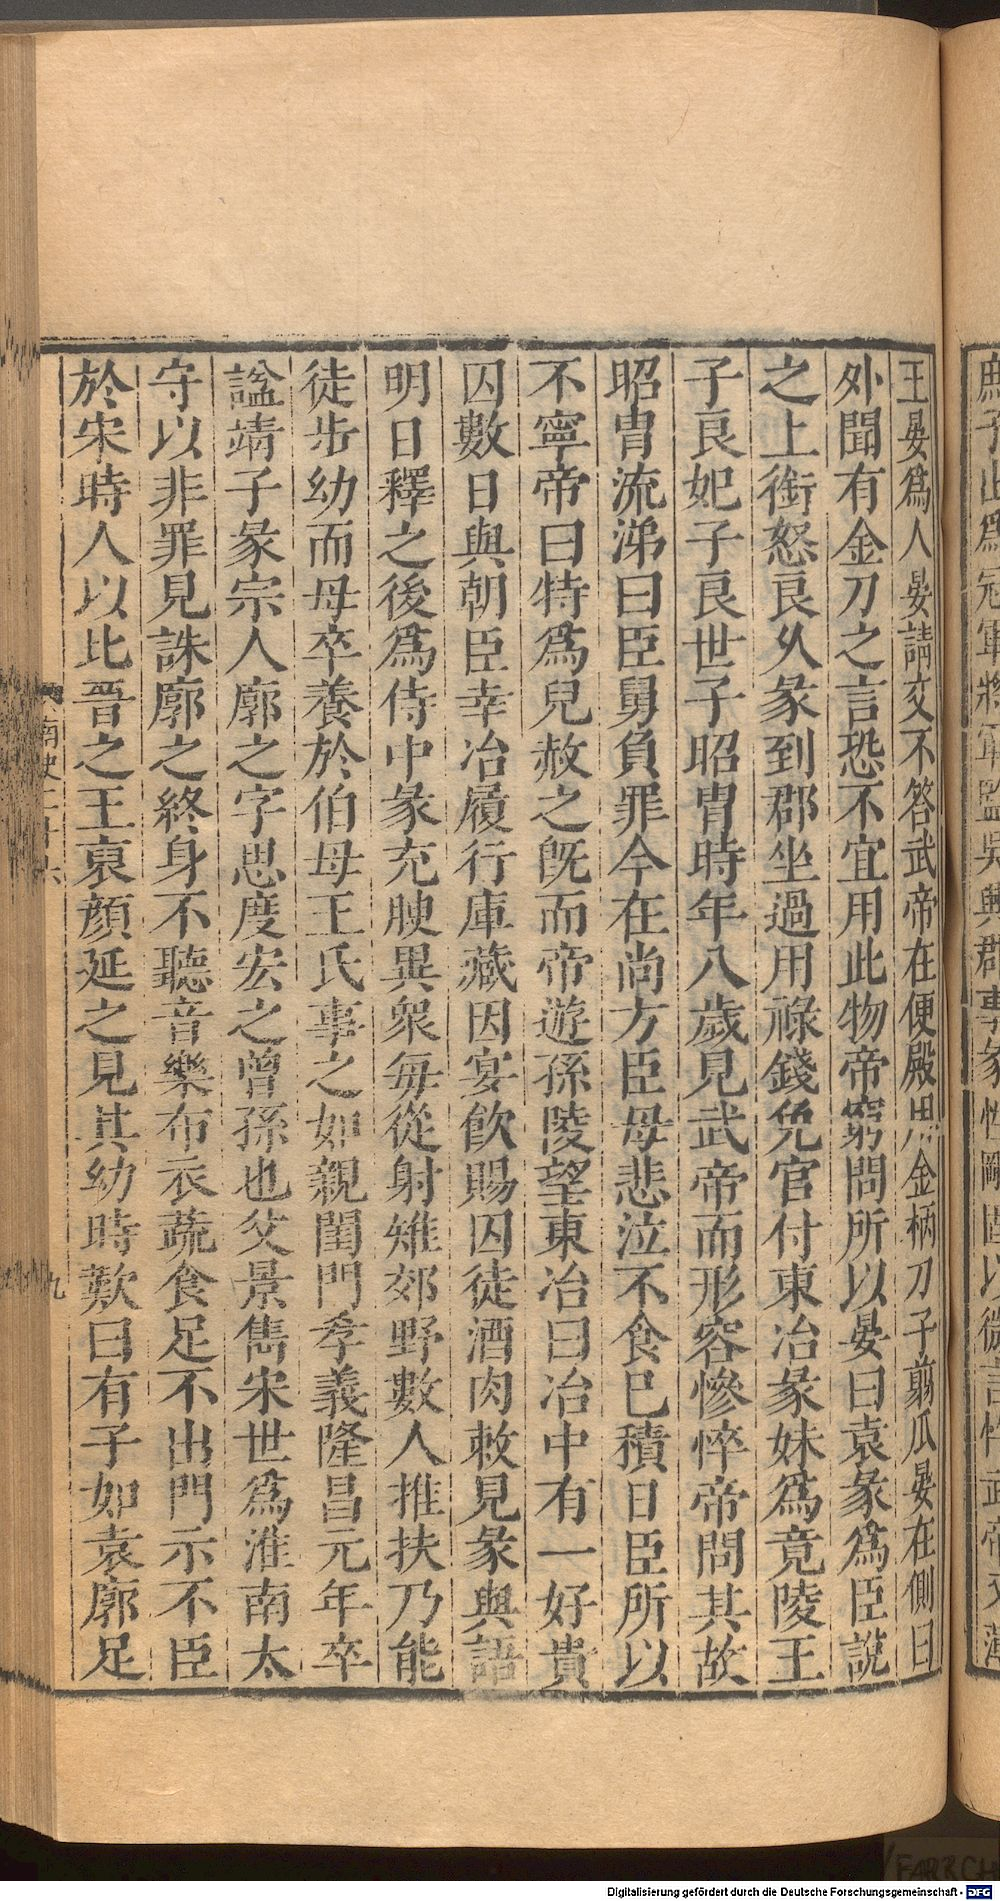 王晏爲人晏請交不答武帝在便殿用金柄刀子翦瓜晏在側曰
外聞有金刀之言恐不宜用此物帝窮問所以晏曰袁彖爲臣說
之上銜怒良久彖到郡坐過用祿錢免官付東冶彖妹爲竟陵王
子良妃子良世子昭胄時年八歲見武帝而形容慘悴帝問其故
昭胄流涕曰臣舅負罪今在尚方臣母悲泣不食已積日臣所以
不寧帝曰特爲兒赦之旣而帝遊孫陵望東冶曰冶中有一好貴
囚數日與朝臣幸冶履行庫藏因宴飮賜囚徒酒肉敕見彖與語
明日釋之後爲侍中彖充腴異衆毎從射雉郊野數人推扶乃能
徒步幼而母卒養於伯母王氏事之如親閨門孝義隆昌元年卒
諡靖子彖宗人廓之字思度宏之曾孫也父景雋宋世爲淮南太
守以非罪見誅廓之終身不聽音樂布衣蔬食足不出門示不臣
於宋時人以比晋之王裒顔延之見其幼時歎曰有子如袁廓足
南史二十六
九
庶子出爲冠軍將軍監吳興郡事彖性剛固以微言忤武帝又薄
Digitalisierung gefördert durch die Deutsche Forschungsgemeinschaft - DFG